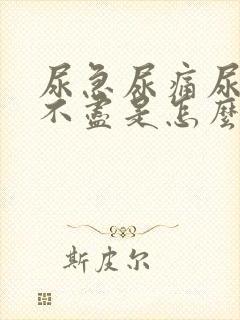 尿急尿痛尿
不盡是怎麼
斯皮尔